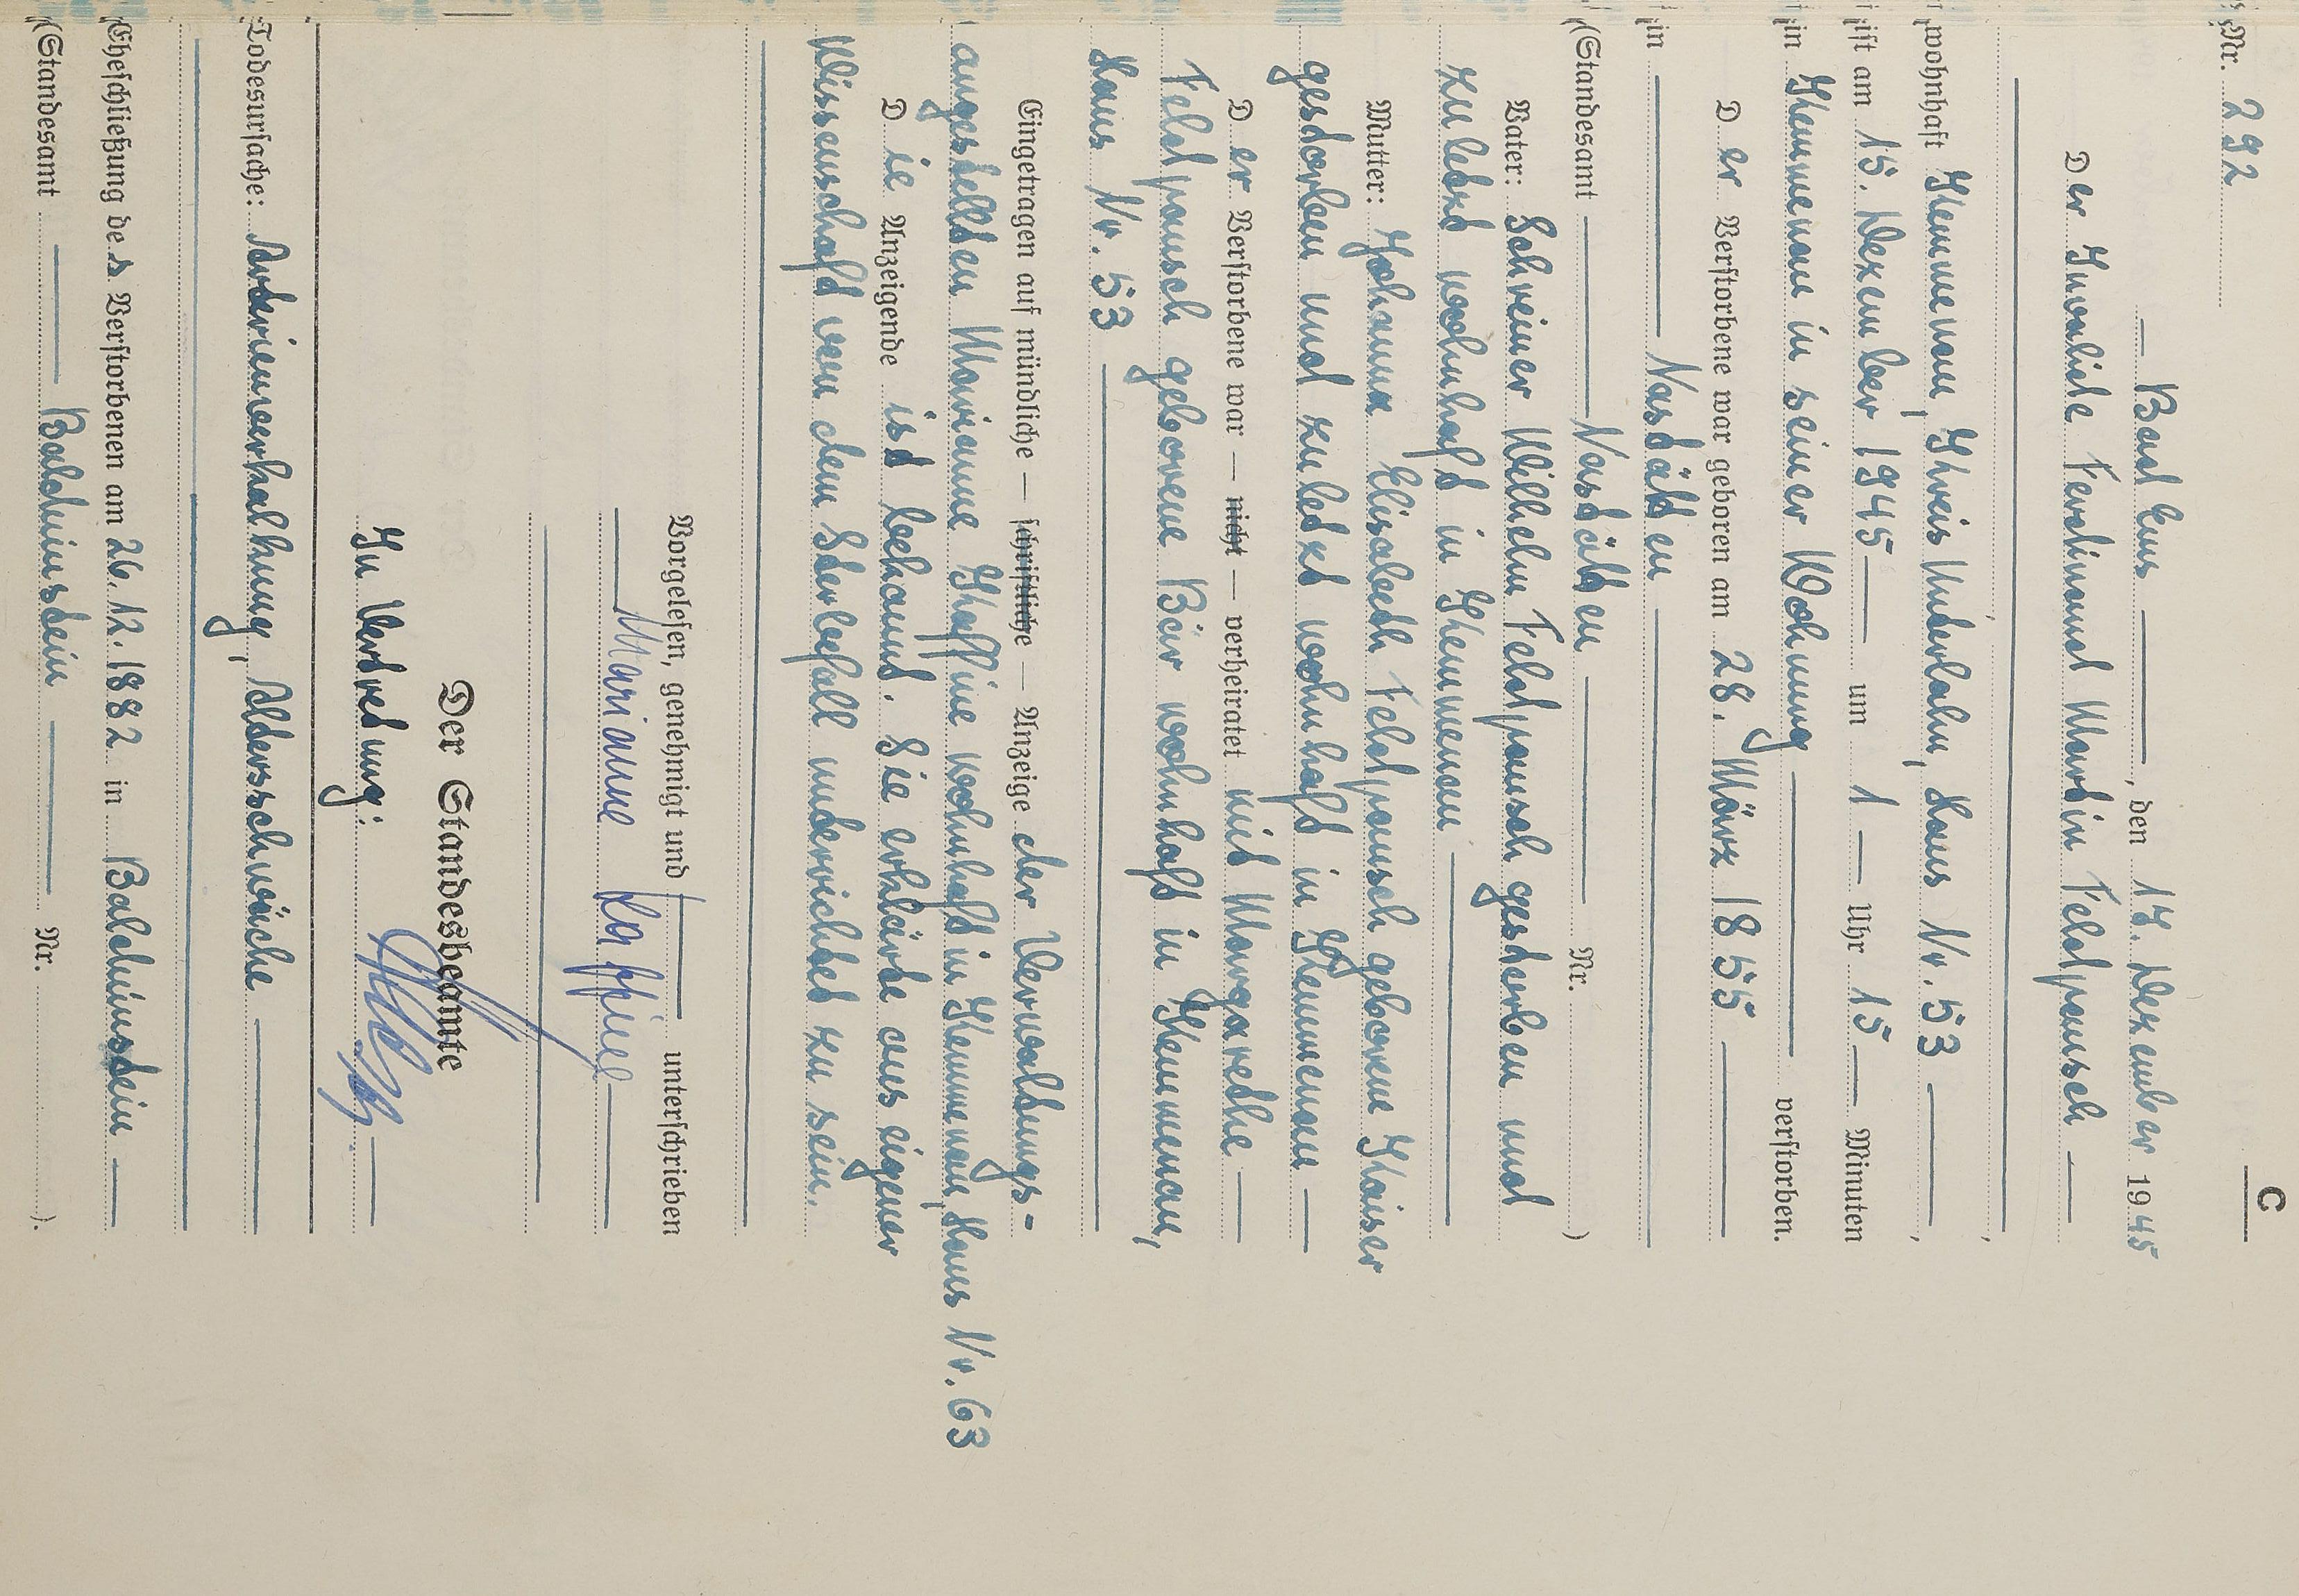 C
Nr. 292
Bad Ems, den 17. Dezember 1945
Der Invalide Ferdinand Martin Feldpausch
wohnhaft Kemmenau, Kreis Unterlahn, Haus Nr. 53
ist am 15. Dezember 1945 um 1 Uhr 15 Minuten
in Kemmenau in seiner Wohnung verstorben.
Der Verstorbene war geboren am 28. März 1855
in Nastätten
(Standesamt Nastätten Nr. )
Vater: Schreiner Wilhelm Feldpausch gestorben und
zuletzt wohnhaft in Kemmenau
Mutter: Johanna Elisabeth Feldpausch geborene Kaiser
gestorben und zuletzt wohnhaft in Kemmenau
Der Verstorbene war — nicht — verheiratet mit Margarethe
Feldpausch geborene Bär wohnhaft in Kemmenau,
Haus Nr. 53
Eingetragen auf mündliche — schriftliche — Anzeige der Verwaltungs-
angestellten Marianne Kaffine wohnhaft in Kemmenau, Haus Nr. 63
Die Anzeigende ist bekannt. Sie erklärte aus eigener
Wissenschaft von dem Sterbefall unterrichtet zu sein.
Vorgelesen, genehmigt und unterschrieben
Marianne
Der Standesbeamte
In Vertretung:
Todesursache: Arterienverkalkung, Altersschwäche
Eheschließung des Verstorbenen am 26.12.1882 in Balduinstein
(Standesamt Balduinstein Nr. ).